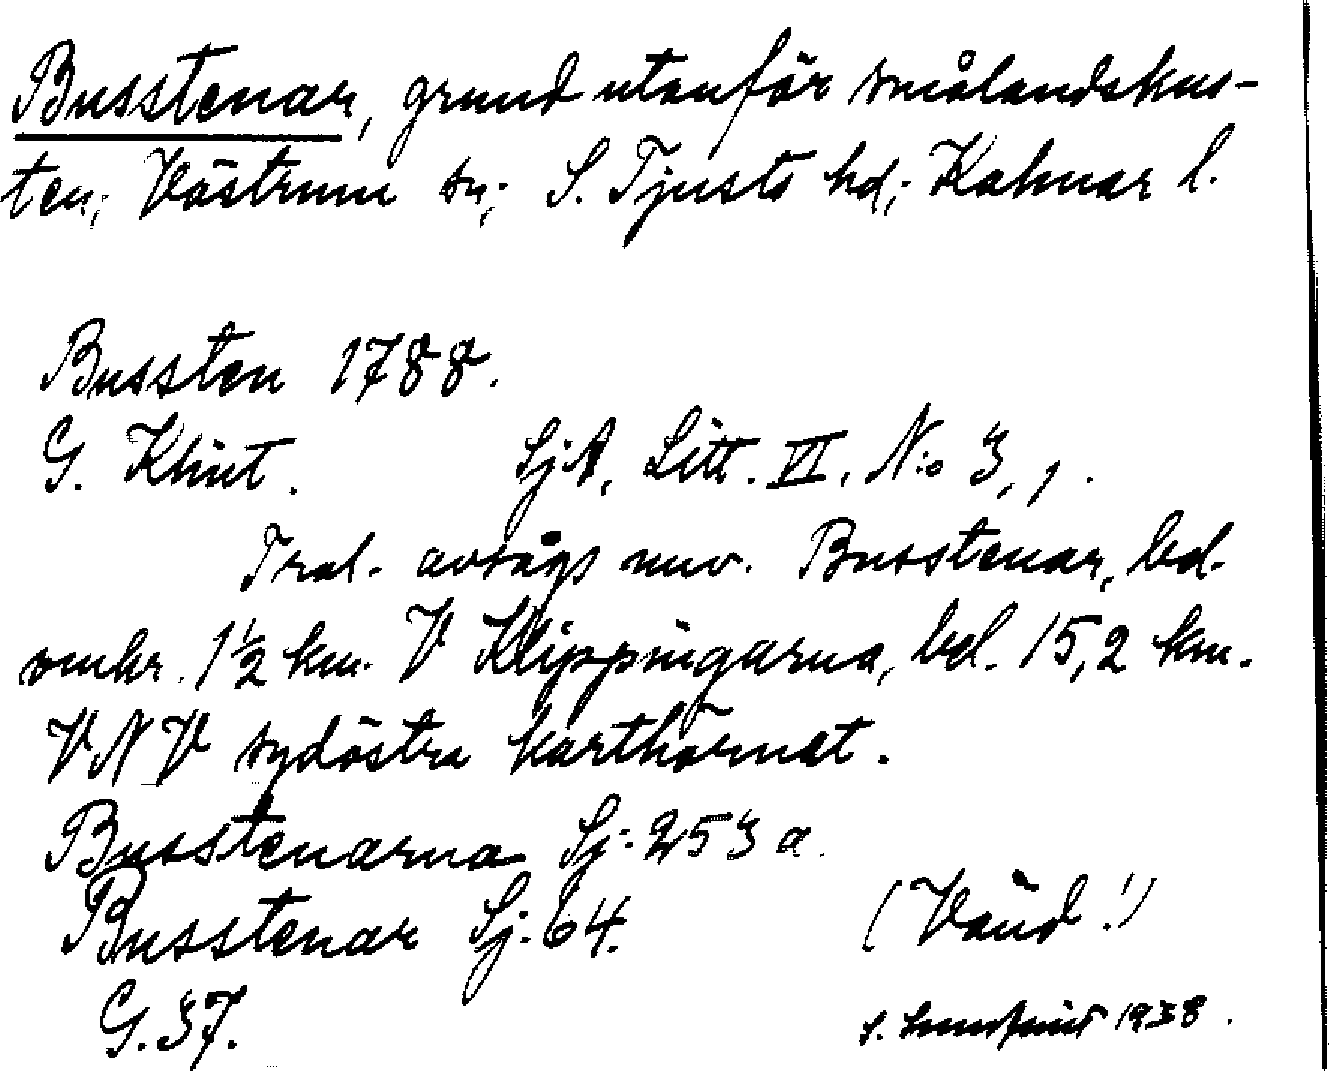 Busstenar, grund utanför smålandskus-
ten, Västrum sn, S. Tjusts hd, Kalmar l.
Bussten 1788.
G. Klint. SjA, Litt. VI. N:o 3, 1.
Trol. avságs nuv. Busstenar, bel.
omkr. 1½ km. V Klippingarna, bel. 15,2 km.
VNV sydöstra karthörnet.
Busstenarna Sj. 253 a.
Busstenar Sj. 64. (Vänd!)
G. 37. S. 1938.